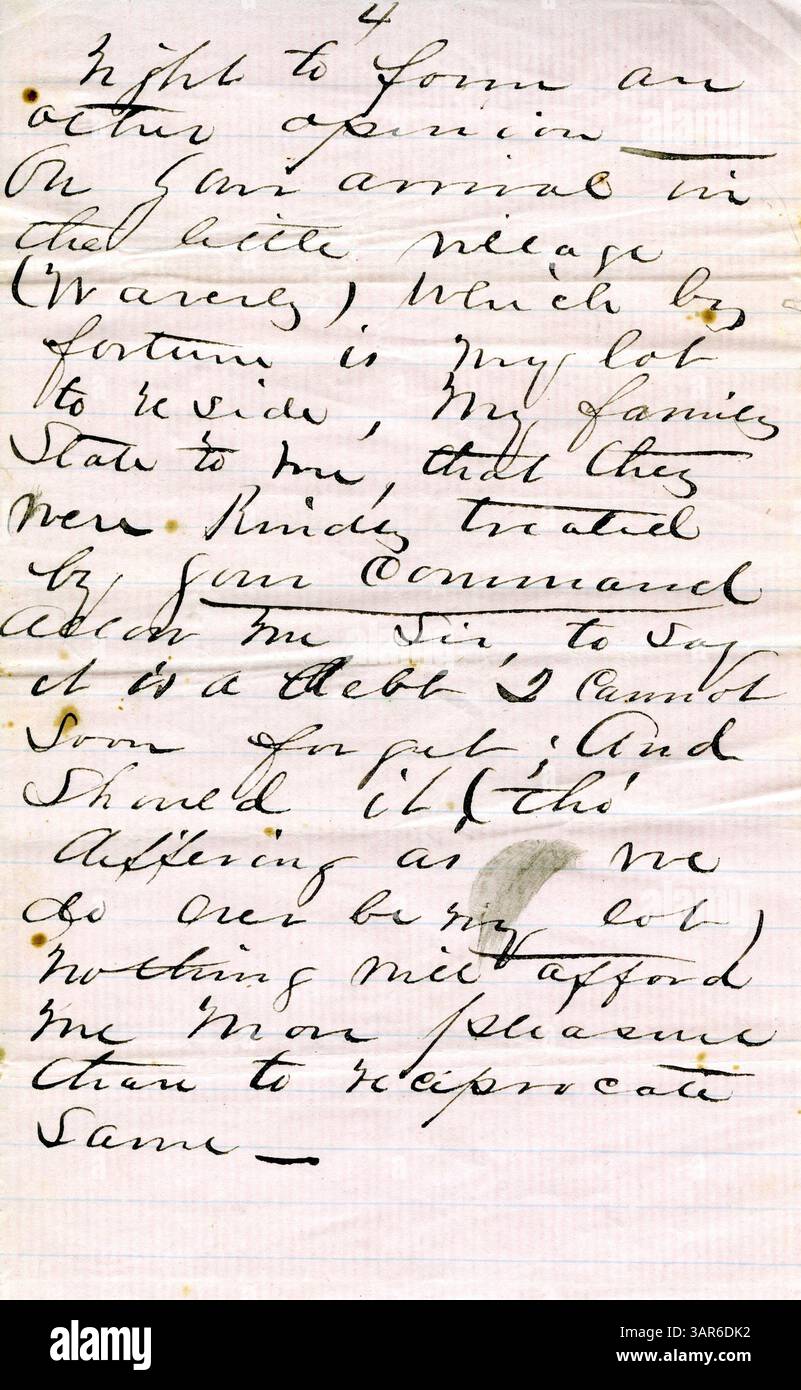 4
right to form an
other opinion —
On your arrival in
the little village
(Waverly) which by
fortune is my lot
to reside, My family
State to me, that they
were Kindly treated
by your Command
Allow me Sir, to say
it is a debt I cannot
soon forget; And
Should it, (tho'
differing as we
do ever be my lot)
nothing will afford
me more pleasure
than to reciprocate
Same —
alamy
Image ID: 3AR6DK2
www.alamy.com